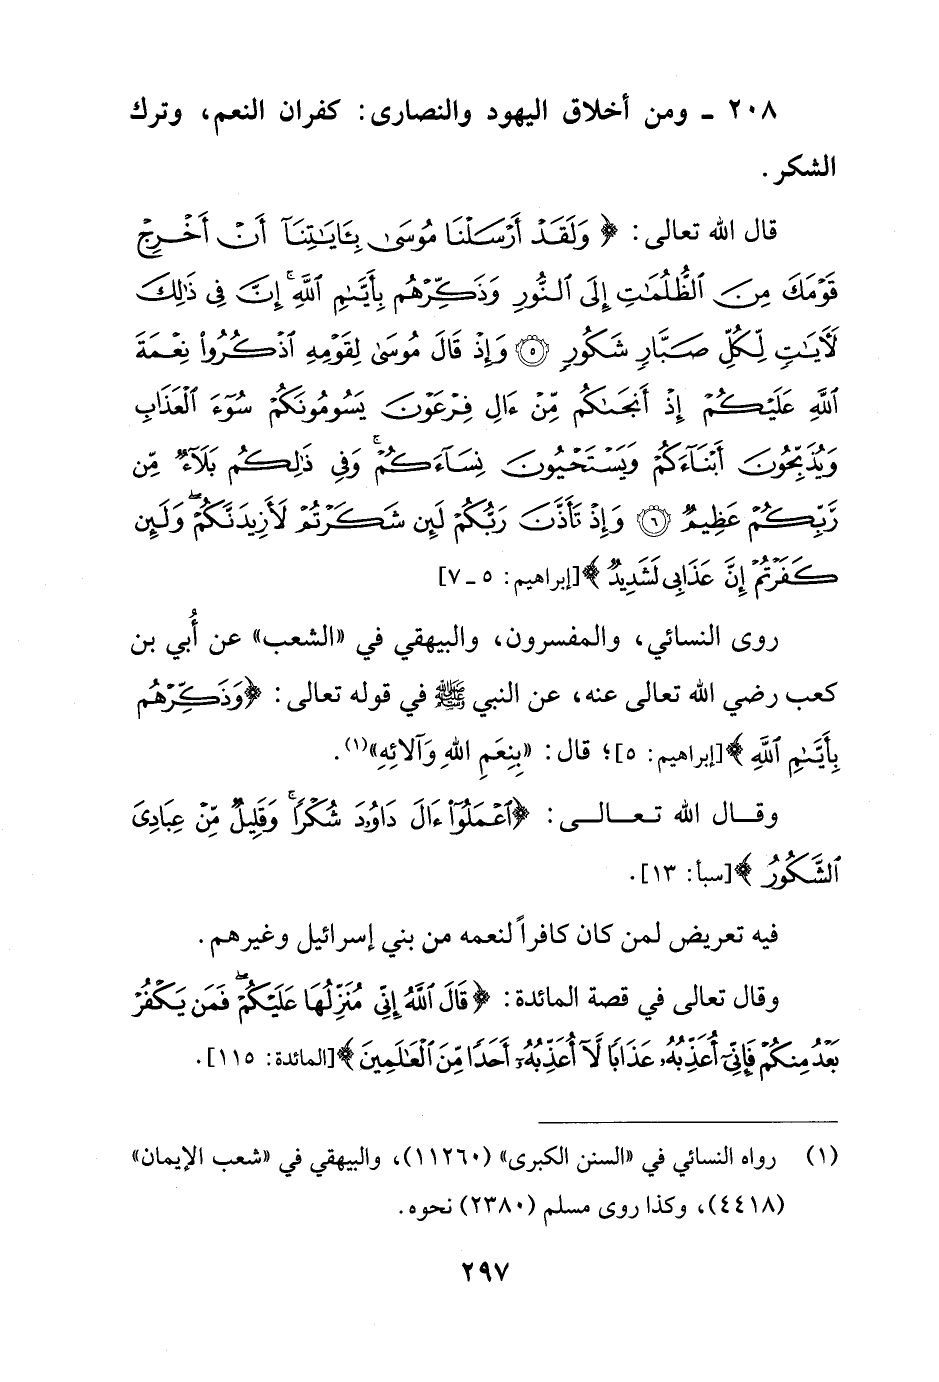 ٢٠٨ - ومن أخلاق اليهود والنصارى: كفران النعم، وترك
الشكر.
قال الله تعالى: ﴿ وَلَقَدْ أَرْسَلْنَا مُوسَىٰ بِـَٔايَـٰتِنَآ أَنْ أَخْرِجْ
قَوْمَكَ مِنَ ٱلظُّلُمَـٰتِ إِلَى ٱلنُّورِ وَذَكِّرْهُم بِأَيَّىٰمِ ٱللَّهِ ۚ إِنَّ فِى ذَٰلِكَ
لَـَٔايَـٰتٍ لِّكُلِّ صَبَّارٍ شَكُورٍ ۝٥ وَإِذْ قَالَ مُوسَىٰ لِقَوْمِهِ ٱذْكُرُوا۟ نِعْمَةَ
ٱللَّهِ عَلَيْكُمْ إِذْ أَنجَىٰكُم مِّنْ ءَالِ فِرْعَوْنَ يَسُومُونَكُمْ سُوٓءَ ٱلْعَذَابِ
وَيُذَبِّحُونَ أَبْنَآءَكُمْ وَيَسْتَحْيُونَ نِسَآءَكُمْ ۚ وَفِى ذَٰلِكُم بَلَآءٌ مِّن
رَّبِّكُمْ عَظِيمٌ ۝٦ وَإِذْ تَأَذَّنَ رَبُّكُمْ لَئِن شَكَرْتُمْ لَأَزِيدَنَّكُمْ ۖ وَلَئِن
كَفَرْتُمْ إِنَّ عَذَابِى لَشَدِيدٌ ﴾[إبراهيم: ٥ - ٧]
روى النسائي، والمفسرون، والبيهقي في «الشعب» عن أُبي بن
كعب رضي الله تعالى عنه، عن النبي ﷺ في قوله تعالى: ﴿وَذَكِّرْهُم
بِأَيَّىٰمِ ٱللَّهِ ﴾[إبراهيم: ٥]؛ قال: «بِنِعَمِ اللهِ وَآلائِهِ»(١).
وقال الله تعالى: ﴿ٱعْمَلُوٓا۟ ءَالَ دَاوُۥدَ شُكْرًا ۚ وَقَلِيلٌ مِّنْ عِبَادِىَ
ٱلشَّكُورُ ﴾[سبأ: ١٣].
فيه تعريض لمن كان كافراً لنعمه من بني إسرائيل وغيرهم.
وقال تعالى في قصة المائدة: ﴿قَالَ ٱللَّهُ إِنِّى مُنَزِّلُهَا عَلَيْكُمْ ۖ فَمَن يَكْفُرْ
بَعْدُ مِنكُمْ فَإِنِّىٓ أُعَذِّبُهُۥ عَذَابًا لَّآ أُعَذِّبُهُۥٓ أَحَدًا مِّنَ ٱلْعَـٰلَمِينَ ﴾[المائدة: ١١٥].
(١) رواه النسائي في «السنن الكبرى» (١١٢٦٠)، والبيهقي في «شعب الإيمان»
(٤٤١٨)، وكذا روى مسلم (٢٣٨٠) نحوه.
٢٩٧